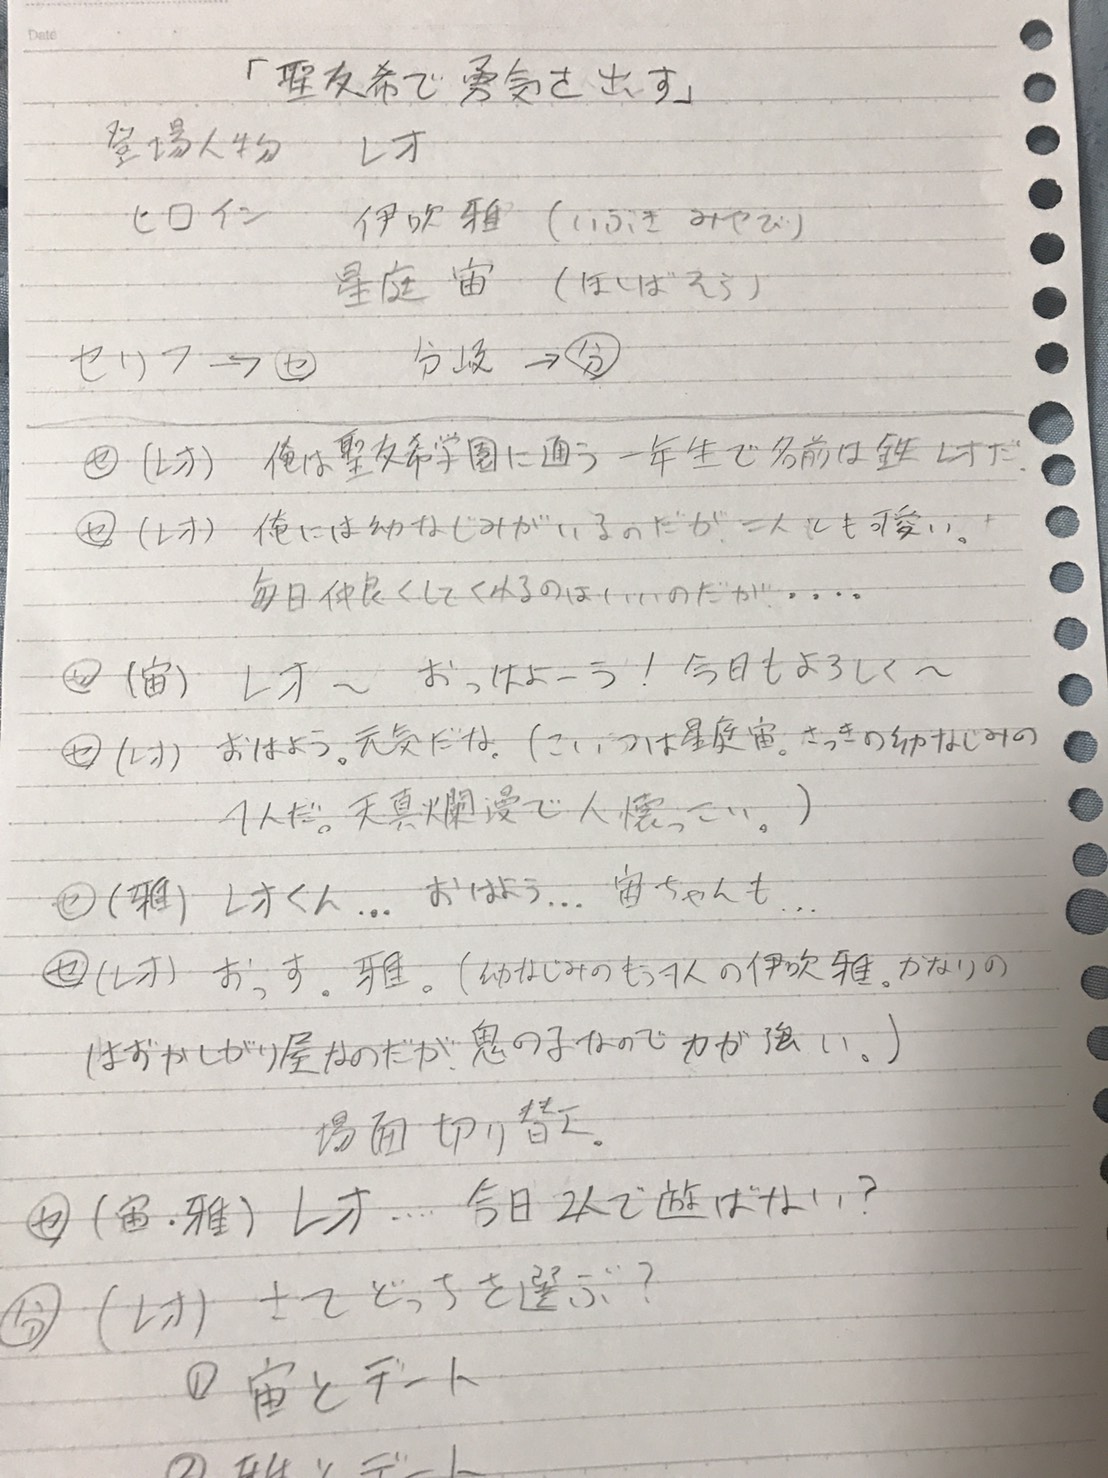 Date
「聖友希で勇気を出す」
登場人物 レオ
ヒロイン 伊吹 雅 (いぶき みやび)
星庭 宙 (ほしば そら)
セリフ→㋝ 分岐→分
㋝(レオ) 俺は聖友希学園に通う一年生で名前は鉄レオだ.
㋝(レオ) 俺には幼なじみがいるのだが、二人とも可愛い。
毎日仲良くしてくれるのはいいのだが....
㋝(宙) レオ〜 おっはよーう!今日もよろしく〜
㋝(レオ) おはよう。元気だな.(こいつは星庭宙。さっきの幼なじみの
1人だ。天真爛漫で人懐っこい。)
㋝(雅) レオくん... おはよう... 宙ちゃんも...
㋝(レオ) おっす。雅。(幼なじみのもう1人の伊吹雅。かなりの
はずかしがり屋なのだが、鬼の子なので力が強い。)
場面切り替え.
㋝(宙・雅) レオ.... 今日2人で遊ばない?
分 (レオ) さてどっちを選ぶ?
① 宙とデート
② 雅とデート